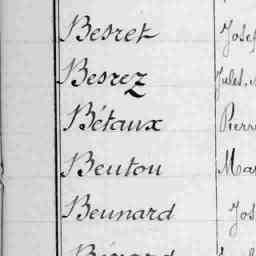 Besret Josef
Besrez Jules
Bétaux Pierre
Beutou Ma
Beunard Jos